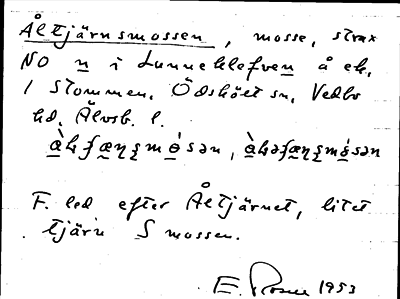 Åltjärnsmossen, mosse, strax
NO n i Lunneklefven å ek.
1 Stommen, Ödskölt sn, Vedbo
hd, Älvsb. l.
F. led efter Åltjärnet, litet
tjärn S mossen.
E. Rosén 1953